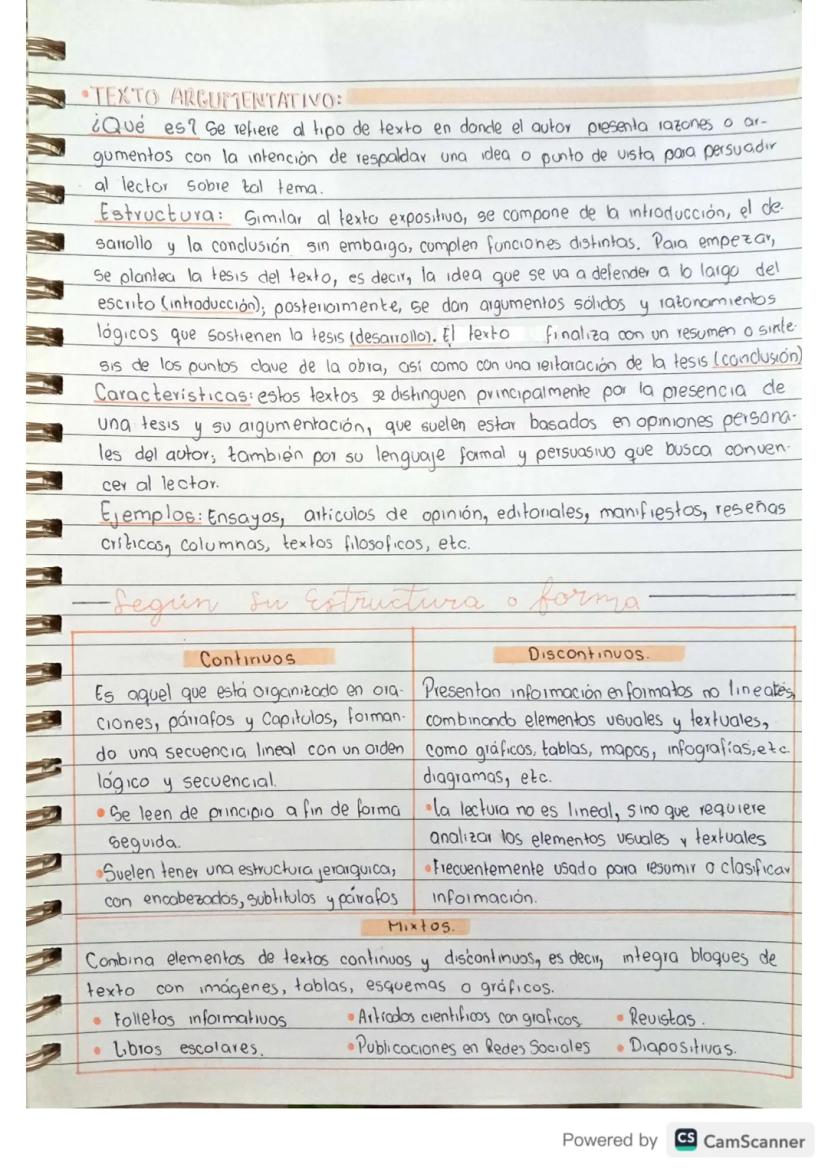 • TEXTO ARGUMENTATIVO:
¿Qué es? Se refiere al tipo de texto en donde el autor presenta razones o ar-
gumentos con la intención de respaldar una idea o punto de vista para persuadir
al lector sobre tal tema.
Estructura: Similar al texto expositivo, se compone de la introducción, el de-
sarrollo y la conclusión sin embargo, cumplen funciones distintas. Para empezar,
se plantea la tesis del texto, es decir, la idea que se va a defender a lo largo del
escrito (introducción); posteriormente, se dan argumentos sólidos y razonamientos
lógicos que sostienen la tesis (desarrollo). El texto finaliza con un resumen o sinte-
sis de los puntos clave de la obra, así como con una reitaración de la tesis (conclusión)
Características: estos textos se distinguen principalmente por la presencia de
una tesis y su argumentación, que suelen estar basados en opiniones persona-
les del autor; también por su lenguaje formal y persuasivo que busca conven-
cer al lector.
Ejemplos: Ensayos, artículos de opinión, editoriales, manifiestos, reseñas
críticas, columnas, textos filosoficos, etc.
Según su Estructura o forma
Continuos
Es aquel que está organizado en ora-
ciones, párrafos y capitulos, forman-
do una secuencia lineal con un orden
lógico y secuencial.
• Se leen de principio a fin de forma
seguida.
• Suelen tener una estructura jerarquica,
con encabezados, subtitulos y párrafos
Discontinuos.
Presentan información en formatos no lineales,
combinando elementos visuales y textuales,
como gráficos, tablas, mapas, infografías, etc
diagramas, etc.
• La lectura no es lineal, sino que requiere
analizar los elementos visuales y textuales
• Frecuentemente usado para resumir o clasificar
información.
Mixtos.
Combina elementos de textos continuos y discontinuos, es decir, integra bloques de
texto con imágenes, tablas, esquemas o gráficos.
• Folletos informativos • Artículos científicos con graficos • Revistas.
• Libros escolares. • Publicaciones en Redes Sociales • Diapositivas.
Powered by CS CamScanner